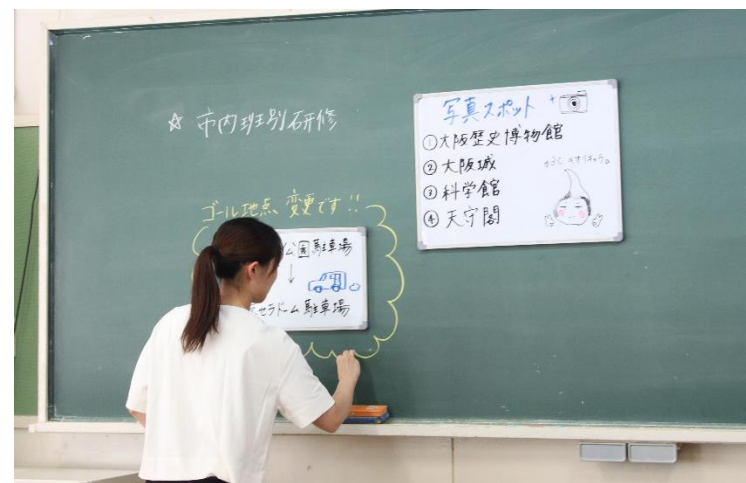 ☆ 市内班別研修
写真スポット
①大阪歴史博物館
②大阪城
③科学館
④天守閣
ゴール地点 変更です!!
公園駐車場
↓
セラドーム駐車場